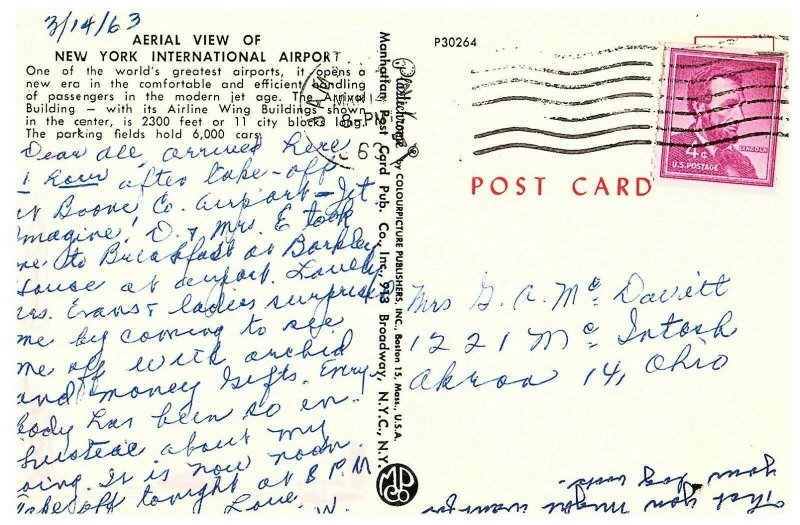 3/14/63
AERIAL VIEW OF
NEW YORK INTERNATIONAL AIRPORT
One of the world's greatest airports, it opens a
new era in the comfortable and efficient handling
of passengers in the modern jet age. The Arrival
Building — with its Airline Wing Buildings shown
in the center, is 2300 feet or 11 city blocks long.
The parking fields hold 6,000 cars.
Dear all, arrived here
1 hour after take-off
at Boone Co. airport - Jet.
magine! D. & Mrs. E took
me to Breakfast at Barkley
ouse at airport. Lovely
rs. Evans & ladies surprised
me by coming to see
me off with orchid
and money gifts. Every
body has been so en-
thusiastic about my
oing. It is now noon.
Take off tonight at 8 PM
Love, W.
Plastichrome ® by COLOURPICTURE PUBLISHERS, INC., Boston 15, Mass., U.S.A.
Manhattan Post Card Pub. Co., Inc., 913 Broadway, N.Y.C., N.Y.
MPC CO
P30264
4¢
LINCOLN
U.S. POSTAGE
POST CARD
Mrs G. A. Mc Davitt
1221 Mc Intosh
Akron 14, Ohio
That you might
your